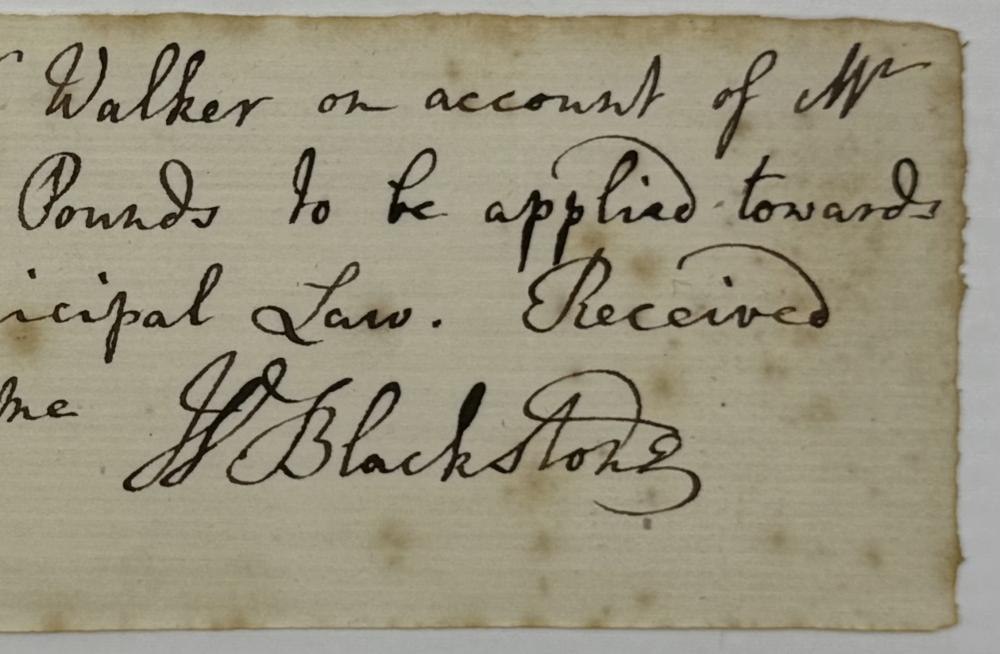 Walker on account of Mr
Pounds to be applied towards
icipal Law. Received
me W Blackstone